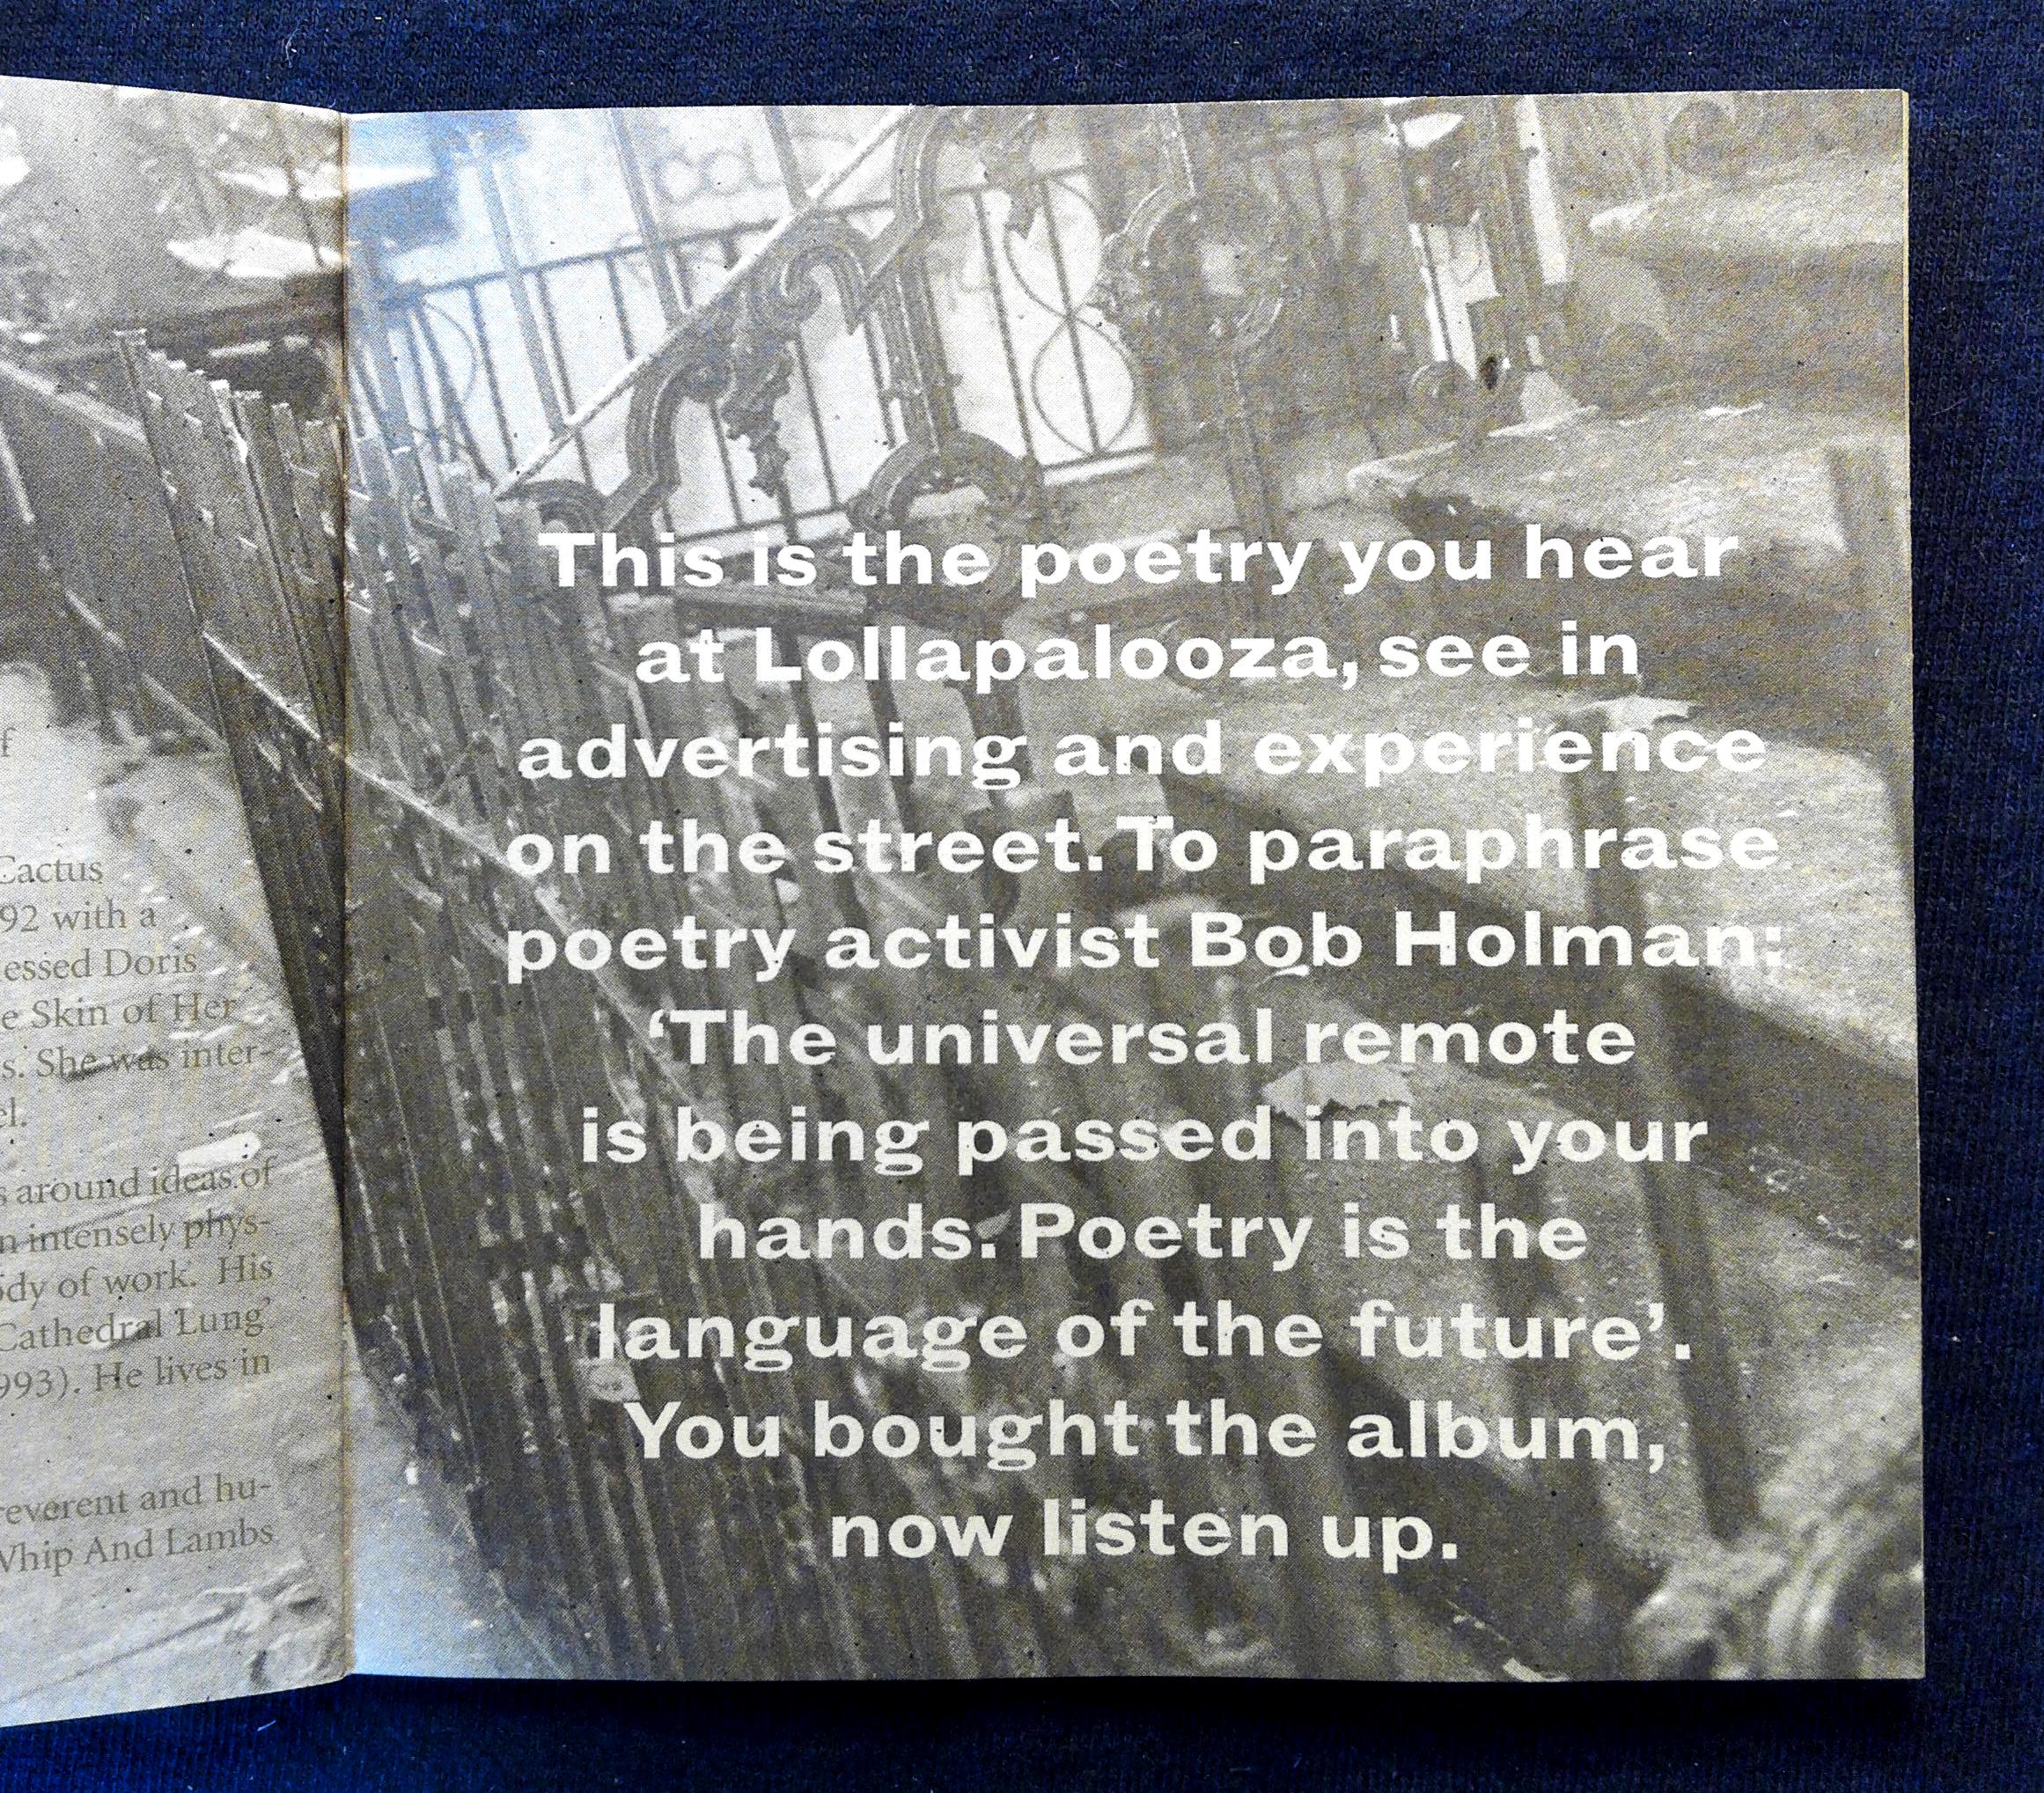 f
Cactus
92 with a
essed Doris
e Skin of Her
s. She was inter-
el.
s around ideas of
n intensely phys-
dy of work. His
Cathedral Lung’
993). He lives in
reverent and hu-
Whip And Lambs
This is the poetry you hear
at Lollapalooza, see in
advertising and experience
on the street. To paraphrase
poetry activist Bob Holman;
‘The universal remote
is being passed into your
hands. Poetry is the
language of the future’.
You bought the album,
now listen up.